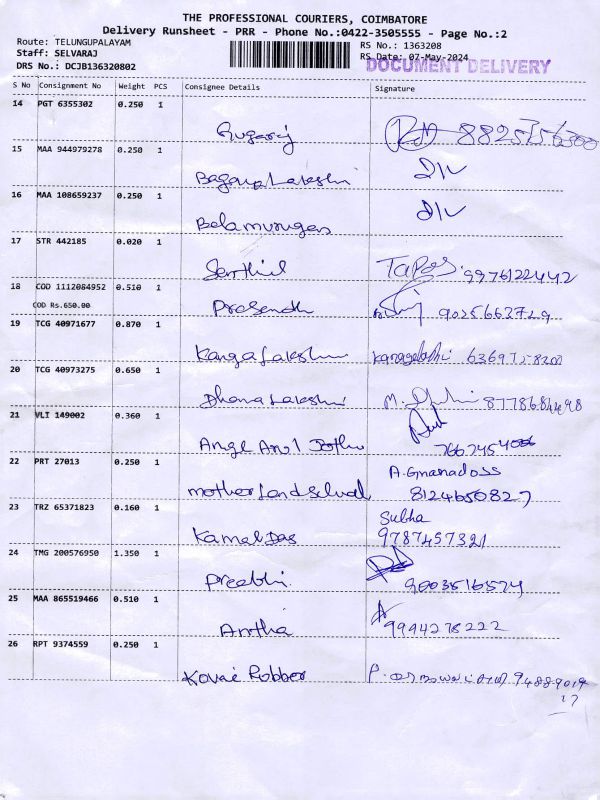 THE PROFESSIONAL COURIERS, COIMBATORE
Delivery Runsheet - PRR - Phone No.:0422-3505555 - Page No.:2
Route: TELUNGUPALAYAM
RS No.: 1363208
Staff: SELVARAJ
RS Date: 07-May-2024
DOCUMENT DELIVERY
DRS No.: DCJB136320802
S No Consignment No Weight PCS Consignee Details Signature
14 PGT 6355302 0.250 1
15 MAA 944979278 0.250 1
16 MAA 108659237 0.250 1
Balamurugan
17 STR 442185 0.020 1
Senthil Tapas 9976122442
18 COD 1112084952 0.510 1
COD Rs.650.00
Prasendh 9025663729
19 TCG 40971677 0.870 1
Kanga Lakshmi
20 TCG 40973275 0.650 1
Dhana Lakshmi
21 VLI 149002 0.360 1
22 PRT 27013 0.250 1
A.Gnanadoss
mother land school 8124650827
23 TRZ 65371823 0.160 1
Subha
Kamal Das 9787457321
24 TMG 200576950 1.350 1
Preethi. 9003516574
25 MAA 865519466 0.510 1
Amtha 9994278222
26 RPT 9374559 0.250 1
Kovai Rubber